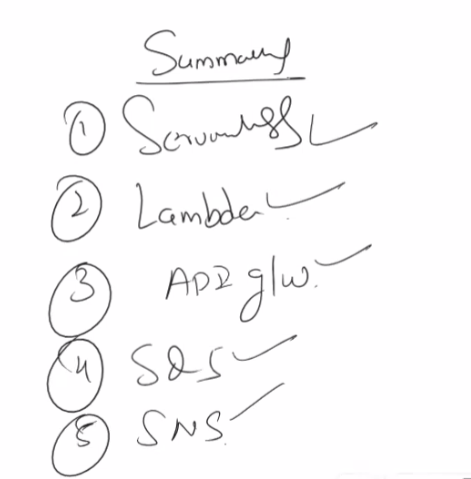 Summary
① Serverless ✓
② Lambda ✓
③ API g/w. ✓
④ SQS ✓
⑤ SNS. ✓